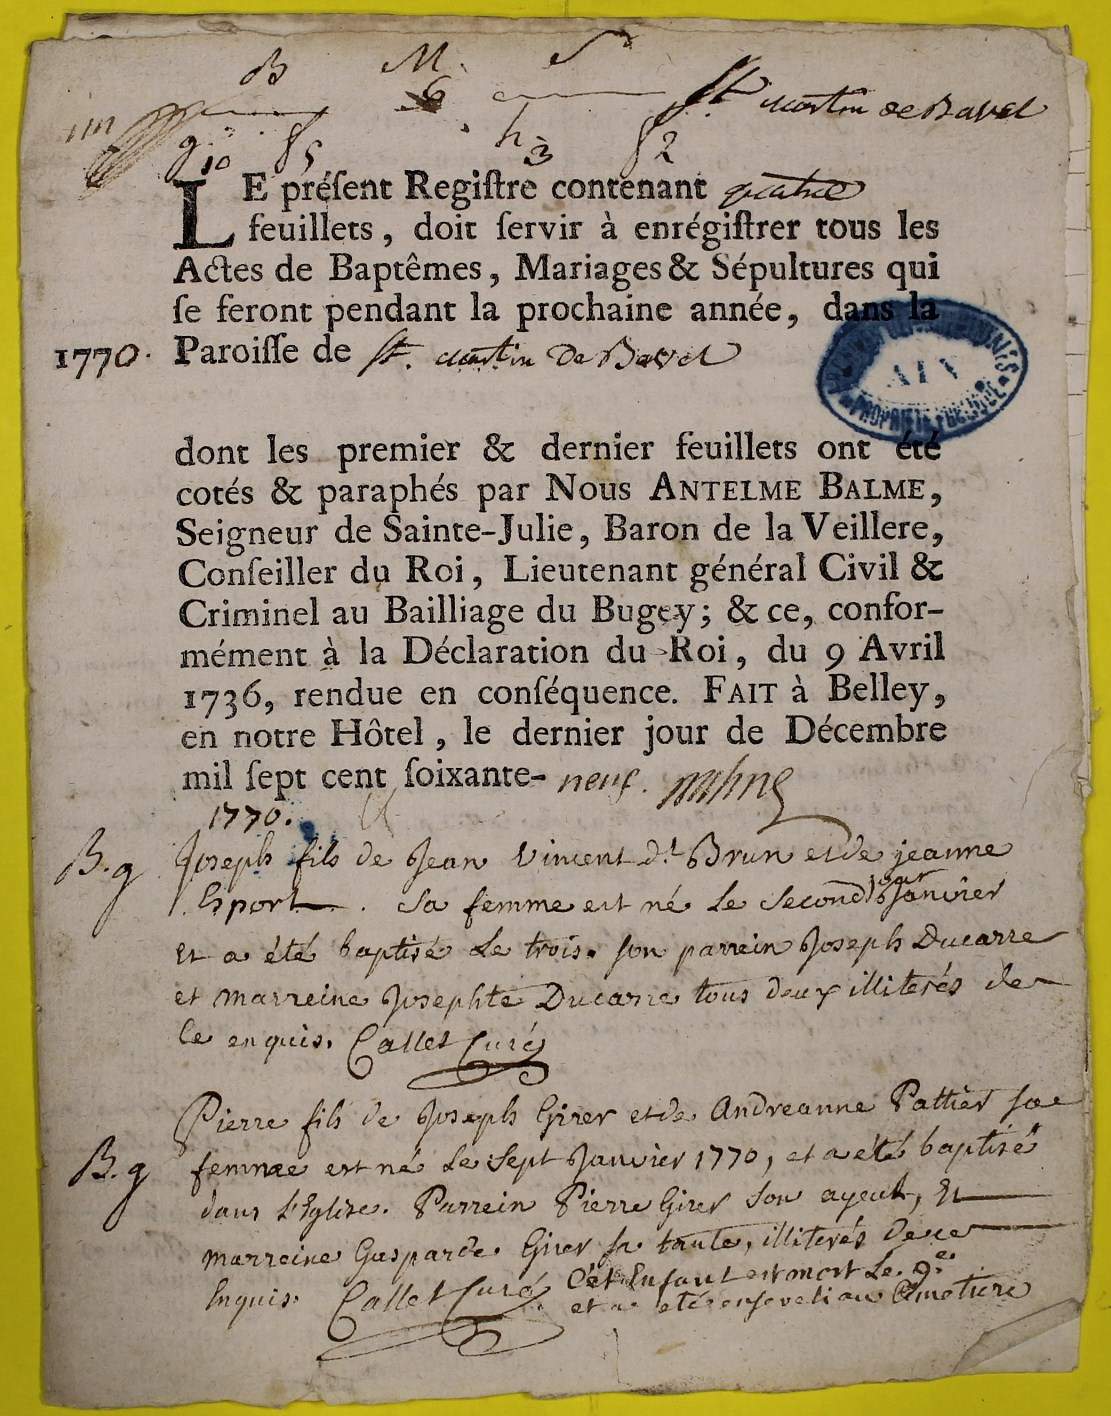 B M. S
6
St. martin de Bavel
g 10 g 5 h 3 g 2
LE préſent Regiſtre contenant quatre
feuillets, doit ſervir à enrégiſtrer tous les
Actes de Baptêmes, Mariages & Sépultures qui
ſe feront pendant la prochaine année, dans la
1770. Paroiſſe de St. martin de Bavel
AIN
PROPRIÉTÉ PUBLIQUE
dont les premier & dernier feuillets ont été
cotés & paraphés par Nous ANTELME BALME,
Seigneur de Sainte-Julie, Baron de la Veillere,
Conſeiller du Roi, Lieutenant général Civil &
Criminel au Bailliage du Bugey; & ce, confor-
mément à la Déclaration du Roi, du 9 Avril
1736, rendue en conſéquence. FAIT à Belley,
en notre Hôtel, le dernier jour de Décembre
mil ſept cent ſoixante- neuf.
1770.
B. g Joseph fils de Jean Vincent dt Brun et de jeanne
Esport. sa femme est né le second jour janvier
et a été baptisé le trois. son parrein Joseph Ducarre
et marreine Josephte Ducarre tous deux illiterés de
ce enquis. Callet Curé
Pierre fils de Joseph Girer et de Andreanne Pattier sa
B. g femme est né le sept Janvier 1770, et a été baptisé
dans l'Eglise. Parrein Pierre Girer son ayeul, Et
marreine Gasparde Girer sa tante, illiterés de ce
Enquis. Callet Curé Cet Enfant est mort le 9e.
et a eté enseveli au Cimetiere